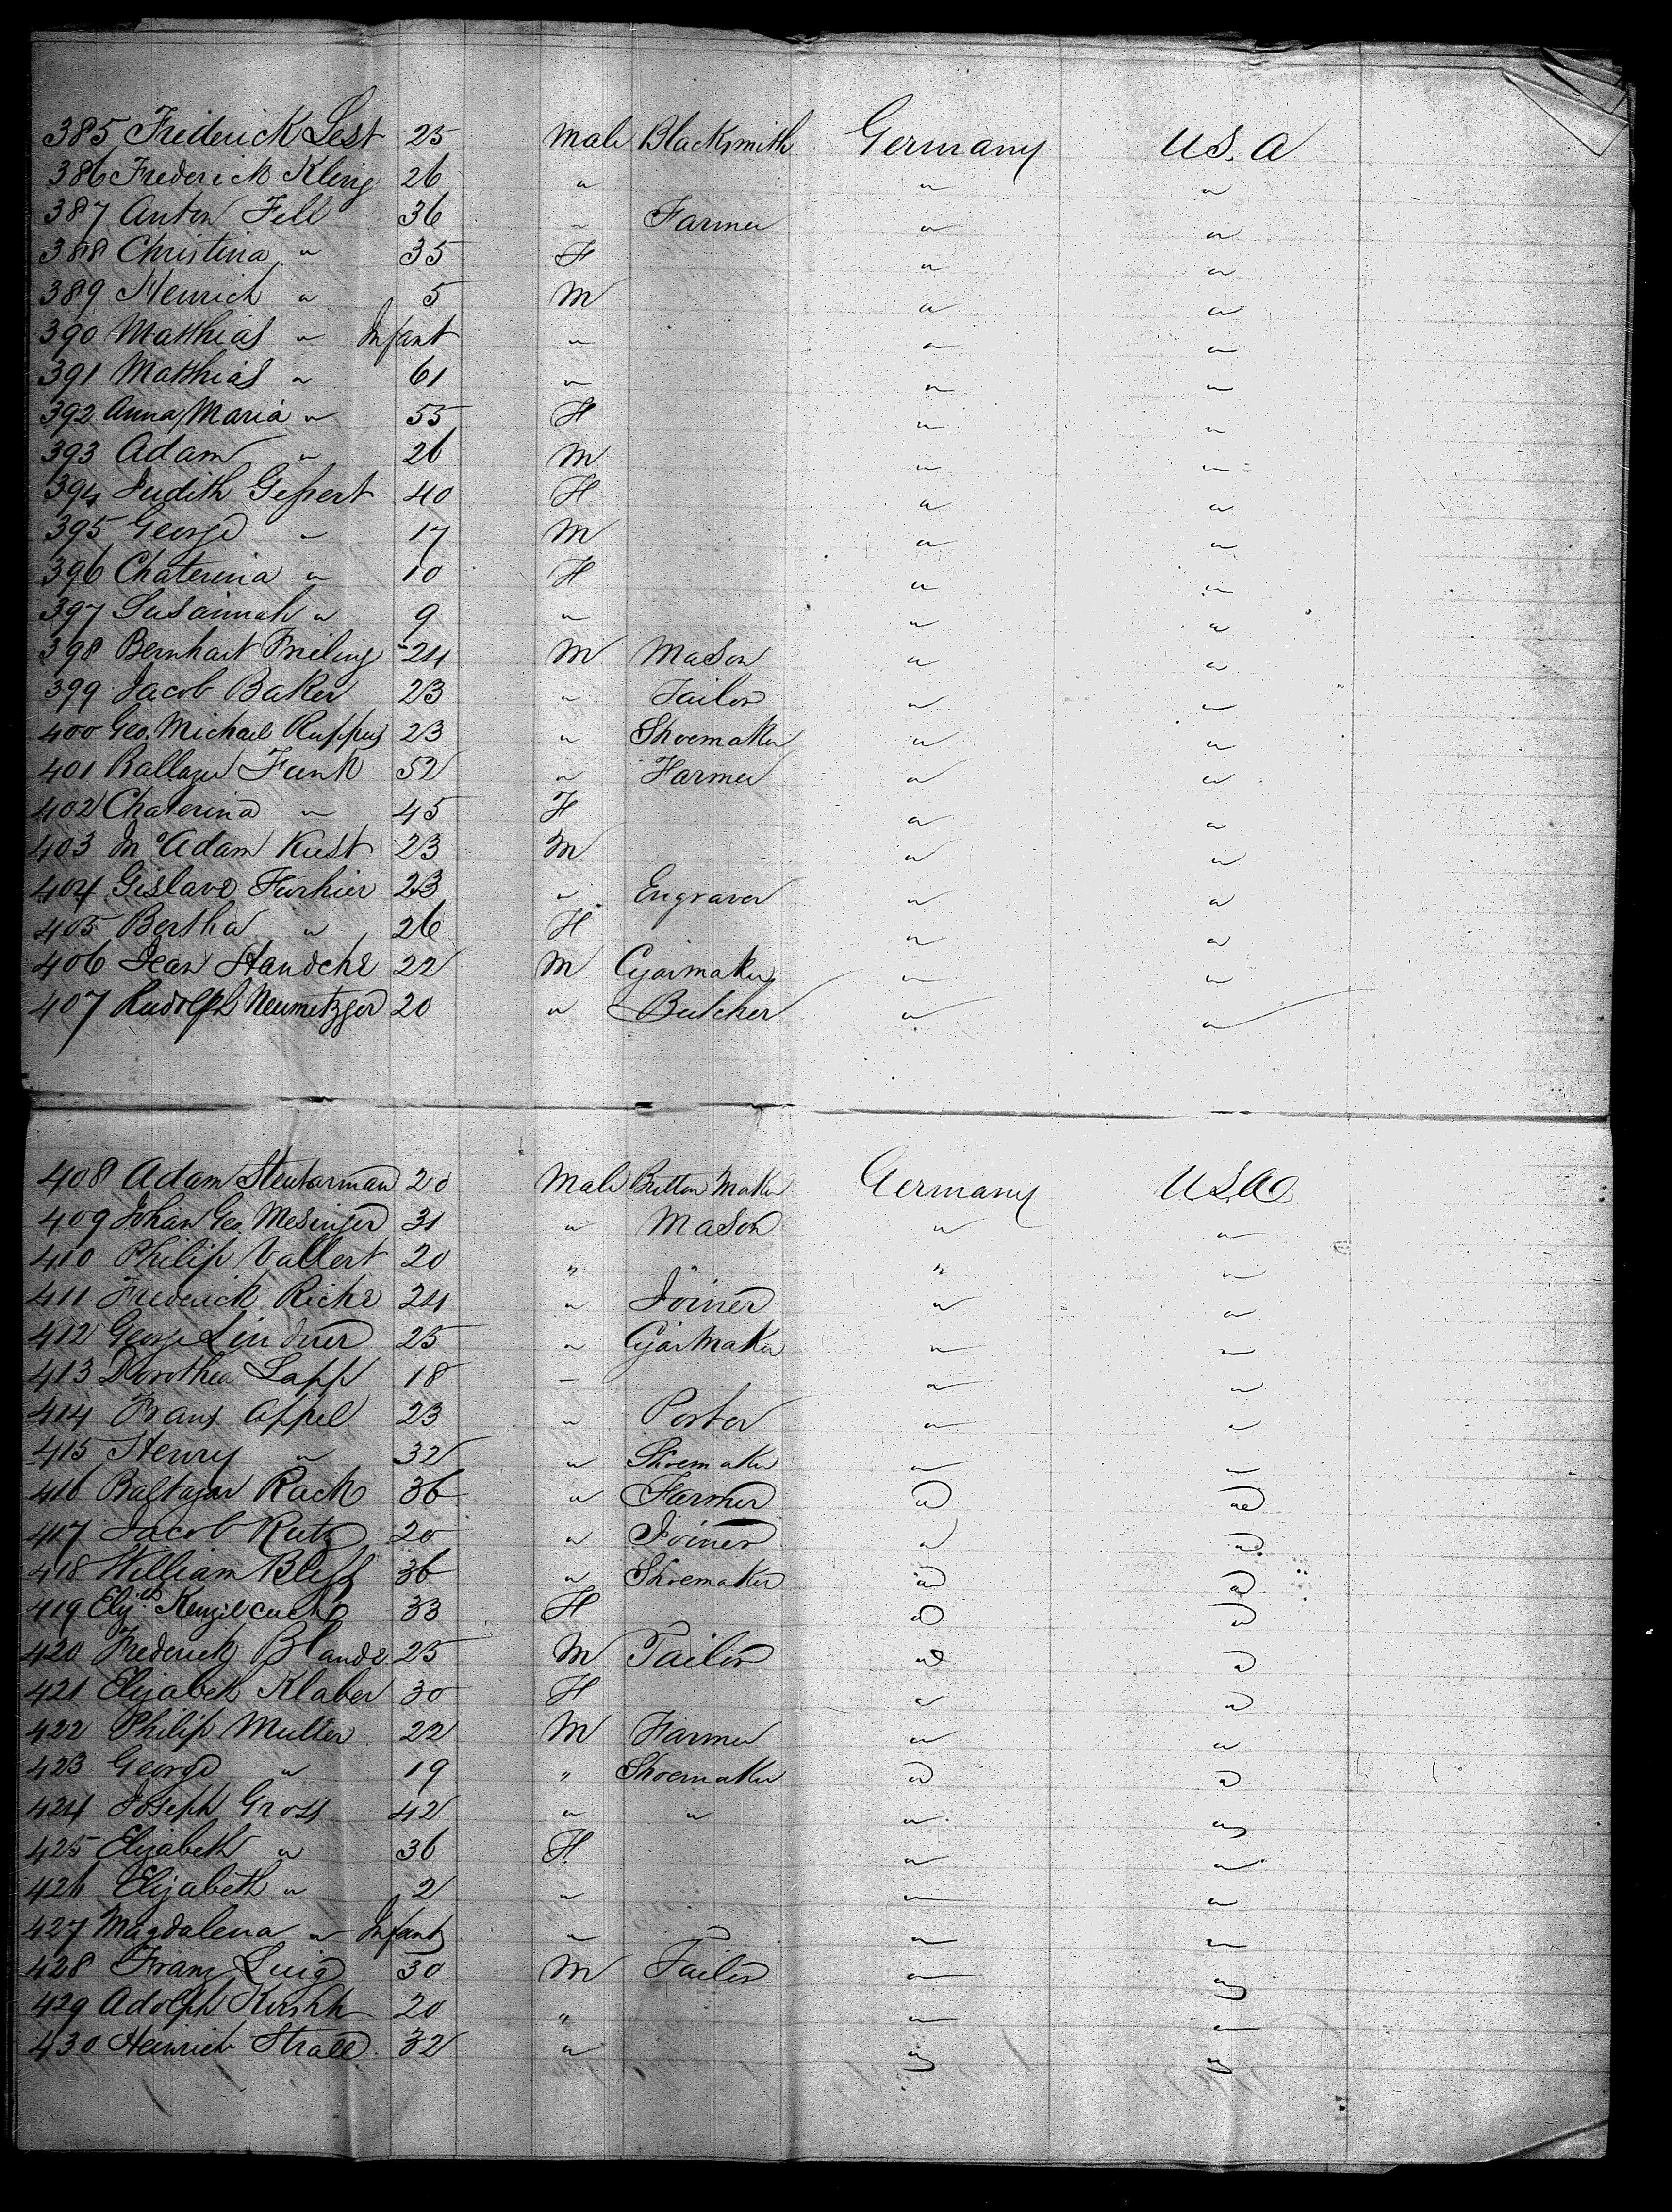 385 Frederick Lest 25 Male Blacksmith Germany U.S.A
386 Frederick Kling 26 " " "
387 Anton Fell 36 " Farmer " "
388 Christina " 35 F " "
389 Henrich " 5 M " "
390 Matthias " Infant " " "
391 Matthias " 61 " " "
392 Anna Maria " 55 F " "
393 Adam " 26 M " "
394 Judith Gessert 40 F " "
395 George " 17 M " "
396 Chaterina " 10 F " "
397 Susannah " 9 " " "
398 Bernhart Frieling 24 M Mason " "
399 Jacob Baker 23 " Tailor " "
400 Geo. Michael Ruppus 23 " Shoemaker " "
401 Funk 52 " Farmer " "
402 Chaterina " 45 F " "
403 Adam Kust 23 M " "
404 Gislave 23 " Engraver " "
405 Bertha " 26 F " "
406 Jean Handche 22 M Cyarmaker " "
407 Rudolph Neumetzger 20 " Butcher " "
408 Adam Steutarman 20 Male Button Maker Germany USA
409 Johan Geo. Mesinger 31 " Mason " "
410 Philip Vallert 20 " " " "
411 Frederick Riche 24 " Joiner " "
412 George Lindner 25 " CyarMaker " "
413 Dorothea Lapp 18 " " "
414 Franz Appel 23 " Porter " "
415 Henry " 32 " Shoemaker " "
416 Baltazar Rack 36 " Farmer " "
417 Jacob Rutz 20 " Joiner " "
418 William Bless 36 " Shoemaker " "
419 Eliz.th 33 F " "
420 Frederick Blande 25 M Tailor " "
421 Elizabeth Klaber 30 F " "
422 Philip Muller 22 M Farmer " "
423 George " 19 " Shoemaker " "
424 Joseph Gross 42 " " " "
425 Elizabeth " 36 F " "
426 Elizabeth " 2 " " "
427 Magdalena " Infant " " "
428 Franz Luig 30 M Tailor " "
429 Adolph 20 " " "
430 Heinrich Strale 32 " " "